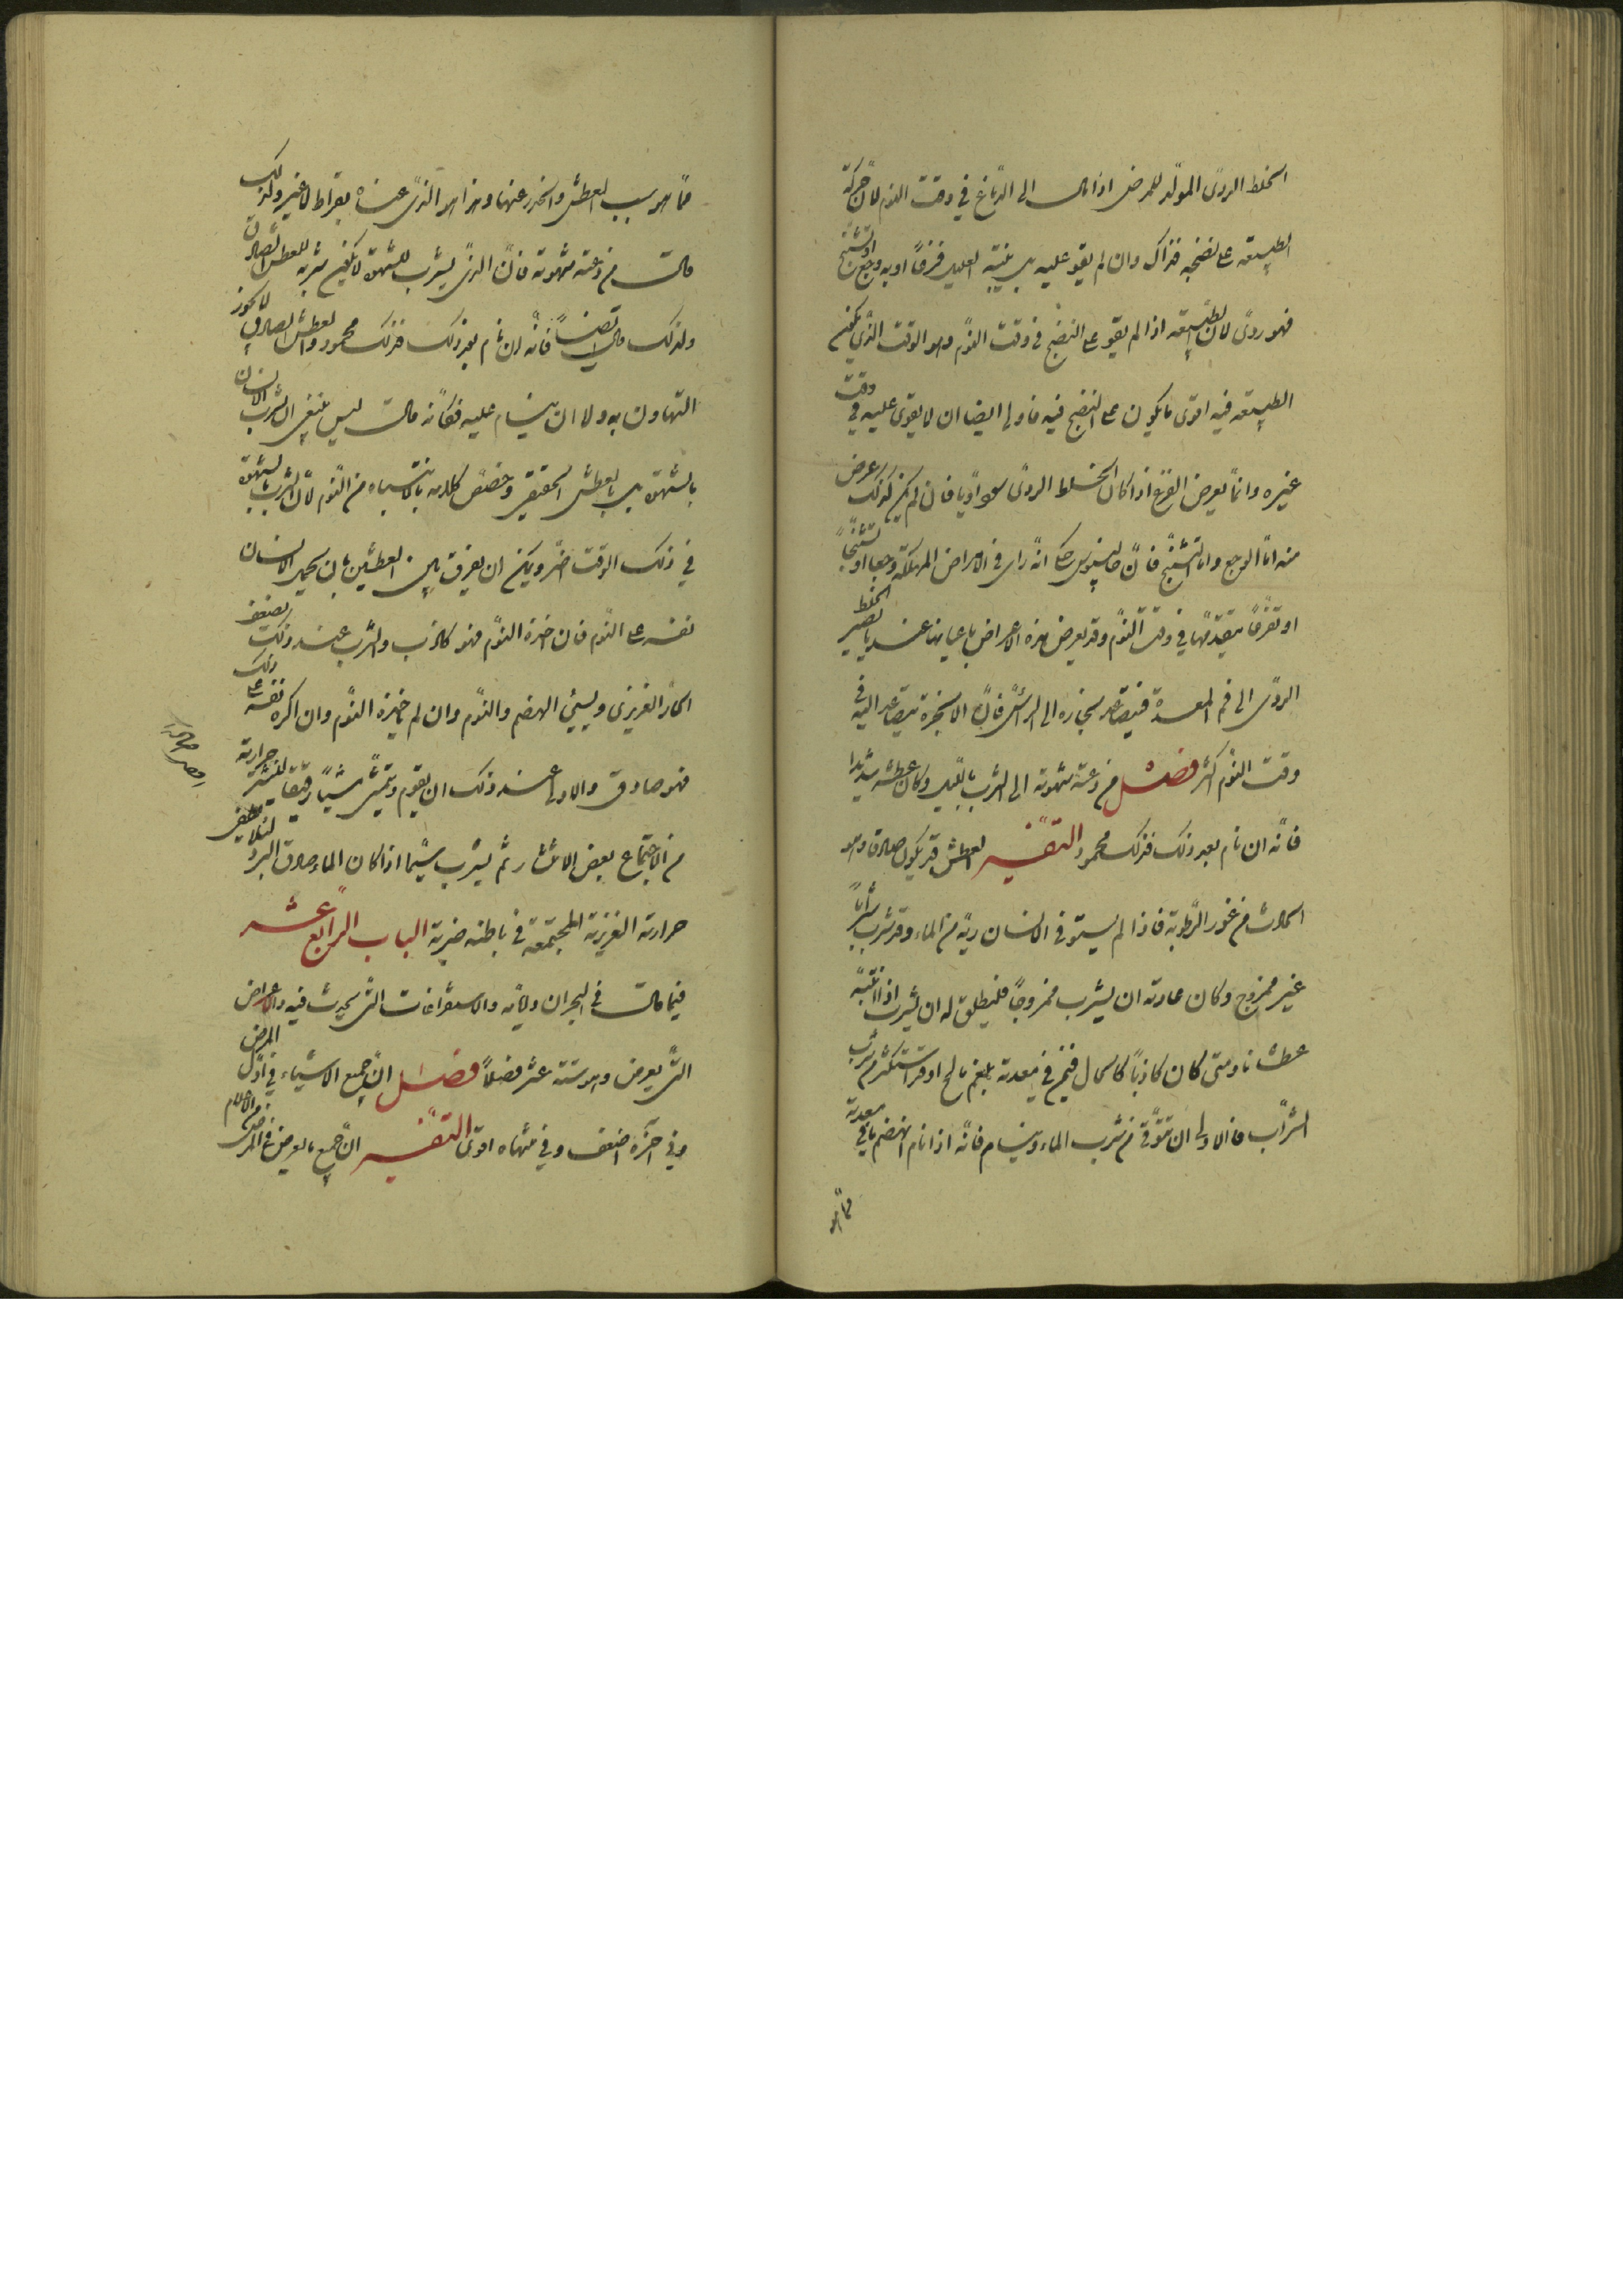 الخلط الردى المولد للمرض اذا مال الى الدماغ فى وقت النوم لان حركة
الطبيعة على نضجه فذاك وان لم يقو عليه بل ينتبه العليل فزعا او به وجع او تشنج
فهو ردى لان الطبيعة اذا لم يقو على النضج فى وقت النوم وهو الوقت الذى يكون
الطبيعة فيه اقوى ما يكون على النضج فيه فاولى ايضا ان لا يقوى عليه فى وقت
غيره وانما يعرض الفزع اذا كان الخلط الردى سوداويا فان لم يكن كذلك عرض
منه اما الوجع واما التشنج فان جالينوس حكى انه راى فى الامراض المهلكة وجعا او تشنجا
او تفزعا يتقدمها فى وقت النوم وقد يعرض هذه الاعراض باعيانها عند ما يصير الخلط
الردى الى فم المعدة فيتصاعد بخاره الى الرأس فان الابخرة تتصاعد اليه فى
وقت النوم اكثر فصل من دعته شهوته الى الشرب بالليل وكان عطشه شديدا
فانه ان نام بعد ذلك فذلك محمود التفسير العطش قد يكون صادقا وهو
الحادث من غور الرطوبة فاذا لم يستوف الانسان ريه من الماء وقد شرب شرابا
غير ممزوج وكان عادته ان يشرب ممزوجا فليطلق له ان يشرب اذا انتبه
عطشانا ومتى كان كاذبا كالحال فيمن فى معدته بلغم مالح او قد استكثر من شرب
الشراب فالاولى ان يتوقى من شرب الماء وينام فانه اذا نام انهضم ما فى معدته
مما هو
مما هو سبب العطش وانحدر عنها وهذا هو الذى عناه بقراط لا غير ولذلك
قال من دعته شهوته فان الذى يشرب للشهوة لا يكون شربه للعطش الصادق
ولذلك قال ايضا فانه ان نام بعد ذلك فذلك محمود والعطش الصادق لا يجوز
التهاون به ولا ان ينام عليه فكانه قال ليس ينبغى ان يشرب الانسان
بالشهوة بل بالعطش الحقيقى وخصص كلامه بالانتباه من النوم لان الشرب بالشهوة
فى ذلك الوقت اضر ويمكن ان يفرق بين العطشين بان يحمل الانسان
نفسه على النوم فان اخذه النوم فهو كاذب والشرب عند ذلك يضعف
الحار الغريزى ويسيئ الهضم والنوم وان لم ياخذه النوم وان اكره نفسه على ذلك
فهو صادق والاولى عند ذلك ان يقوم ويتمشى مشيا رفيقا لينتشر حرارته
من الاجتماع بعض الانتشار ثم يشرب سيما اذا كان الماء صادق البرد لئلا يطفى
حرارته الغريزية المجتمعة فى باطنه ضربة الباب الرابع عشر
فيما قال فى البحران وايامه والاستفراغات التى يحدث فيه والاعراض
التى يعرض وهو ستة عشر فصلا فصل ان جميع الاشياء فى اول المرض
وفى اخره اضعف وفى منتهاه اقوى التفسير ان جميع ما يعرض فى المرض من الآلام